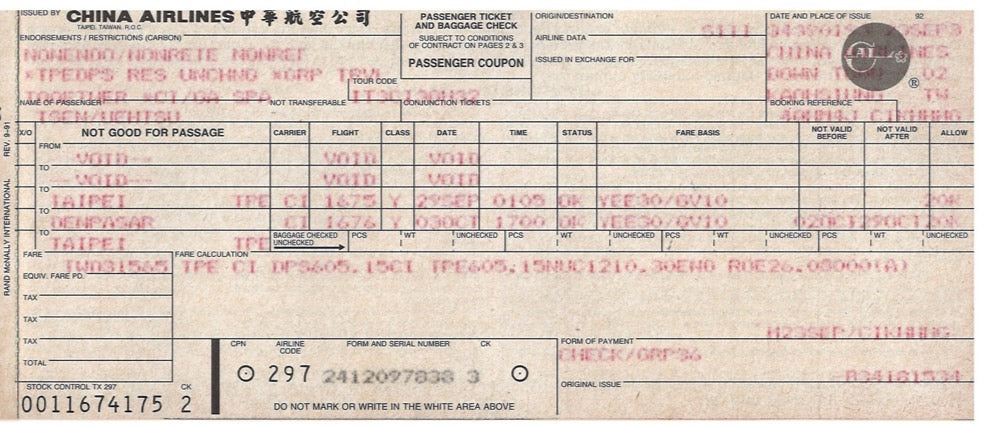 ISSUED BY CHINA AIRLINES 中華航空公司
TAIPEI, TAIWAN, R.O.C.
ENDORSEMENTS / RESTRICTIONS (CARBON)
NONENDO/NONRETE NONREF
*TPEDPS RES UNCHNG *GRP TRVL
TOGETHER *CI/GA SPA
TOUR CODE
IT3CI3GH32
PASSENGER TICKET
AND BAGGAGE CHECK
SUBJECT TO CONDITIONS
OF CONTRACT ON PAGES 2 & 3
PASSENGER COUPON
ORIGIN/DESTINATION
AIRLINE DATA
ISSUED IN EXCHANGE FOR
SITI
DATE AND PLACE OF ISSUE 92
CHINA AIRLINES
DOWN TOWN 02
KAOHSIUNG TW
BOOKING REFERENCE
NAME OF PASSENGER NOT TRANSFERABLE CONJUNCTION TICKETS
TSEN/WEHTSU
X/O NOT GOOD FOR PASSAGE CARRIER FLIGHT CLASS DATE TIME STATUS FARE BASIS NOT VALID BEFORE NOT VALID AFTER ALLOW
FROM --VOID-- VOID VOID
TO --VOID-- VOID VOID
TO TAIPEI TPE CI 1675 Y 29SEP 0105 OK YEE30/GV10 20K
TO DENPASAR CI 1676 Y 03OCT 1700 OK YEE30/GV10 02OCT 29OCT 20K
TO TAIPEI TPE
BAGGAGE CHECKED
UNCHECKED
PCS WT UNCHECKED PCS WT UNCHECKED PCS WT UNCHECKED PCS WT UNCHECKED
FARE FARE CALCULATION
TWD31565 TPE CI DPS605.15CI TPE605.15NUC1210.30END ROE26.08000(A)
EQUIV. FARE PD.
TAX
TAX
TAX
TOTAL
M23SEP/CIKHHHG
CPN AIRLINE CODE FORM AND SERIAL NUMBER CK
297 2412097838 3
DO NOT MARK OR WRITE IN THE WHITE AREA ABOVE
FORM OF PAYMENT
CHECK/GRP36
-B34181534
ORIGINAL ISSUE
STOCK CONTROL TX 297 CK
0011674175 2
RAND McNALLY INTERNATIONAL REV. 9-91